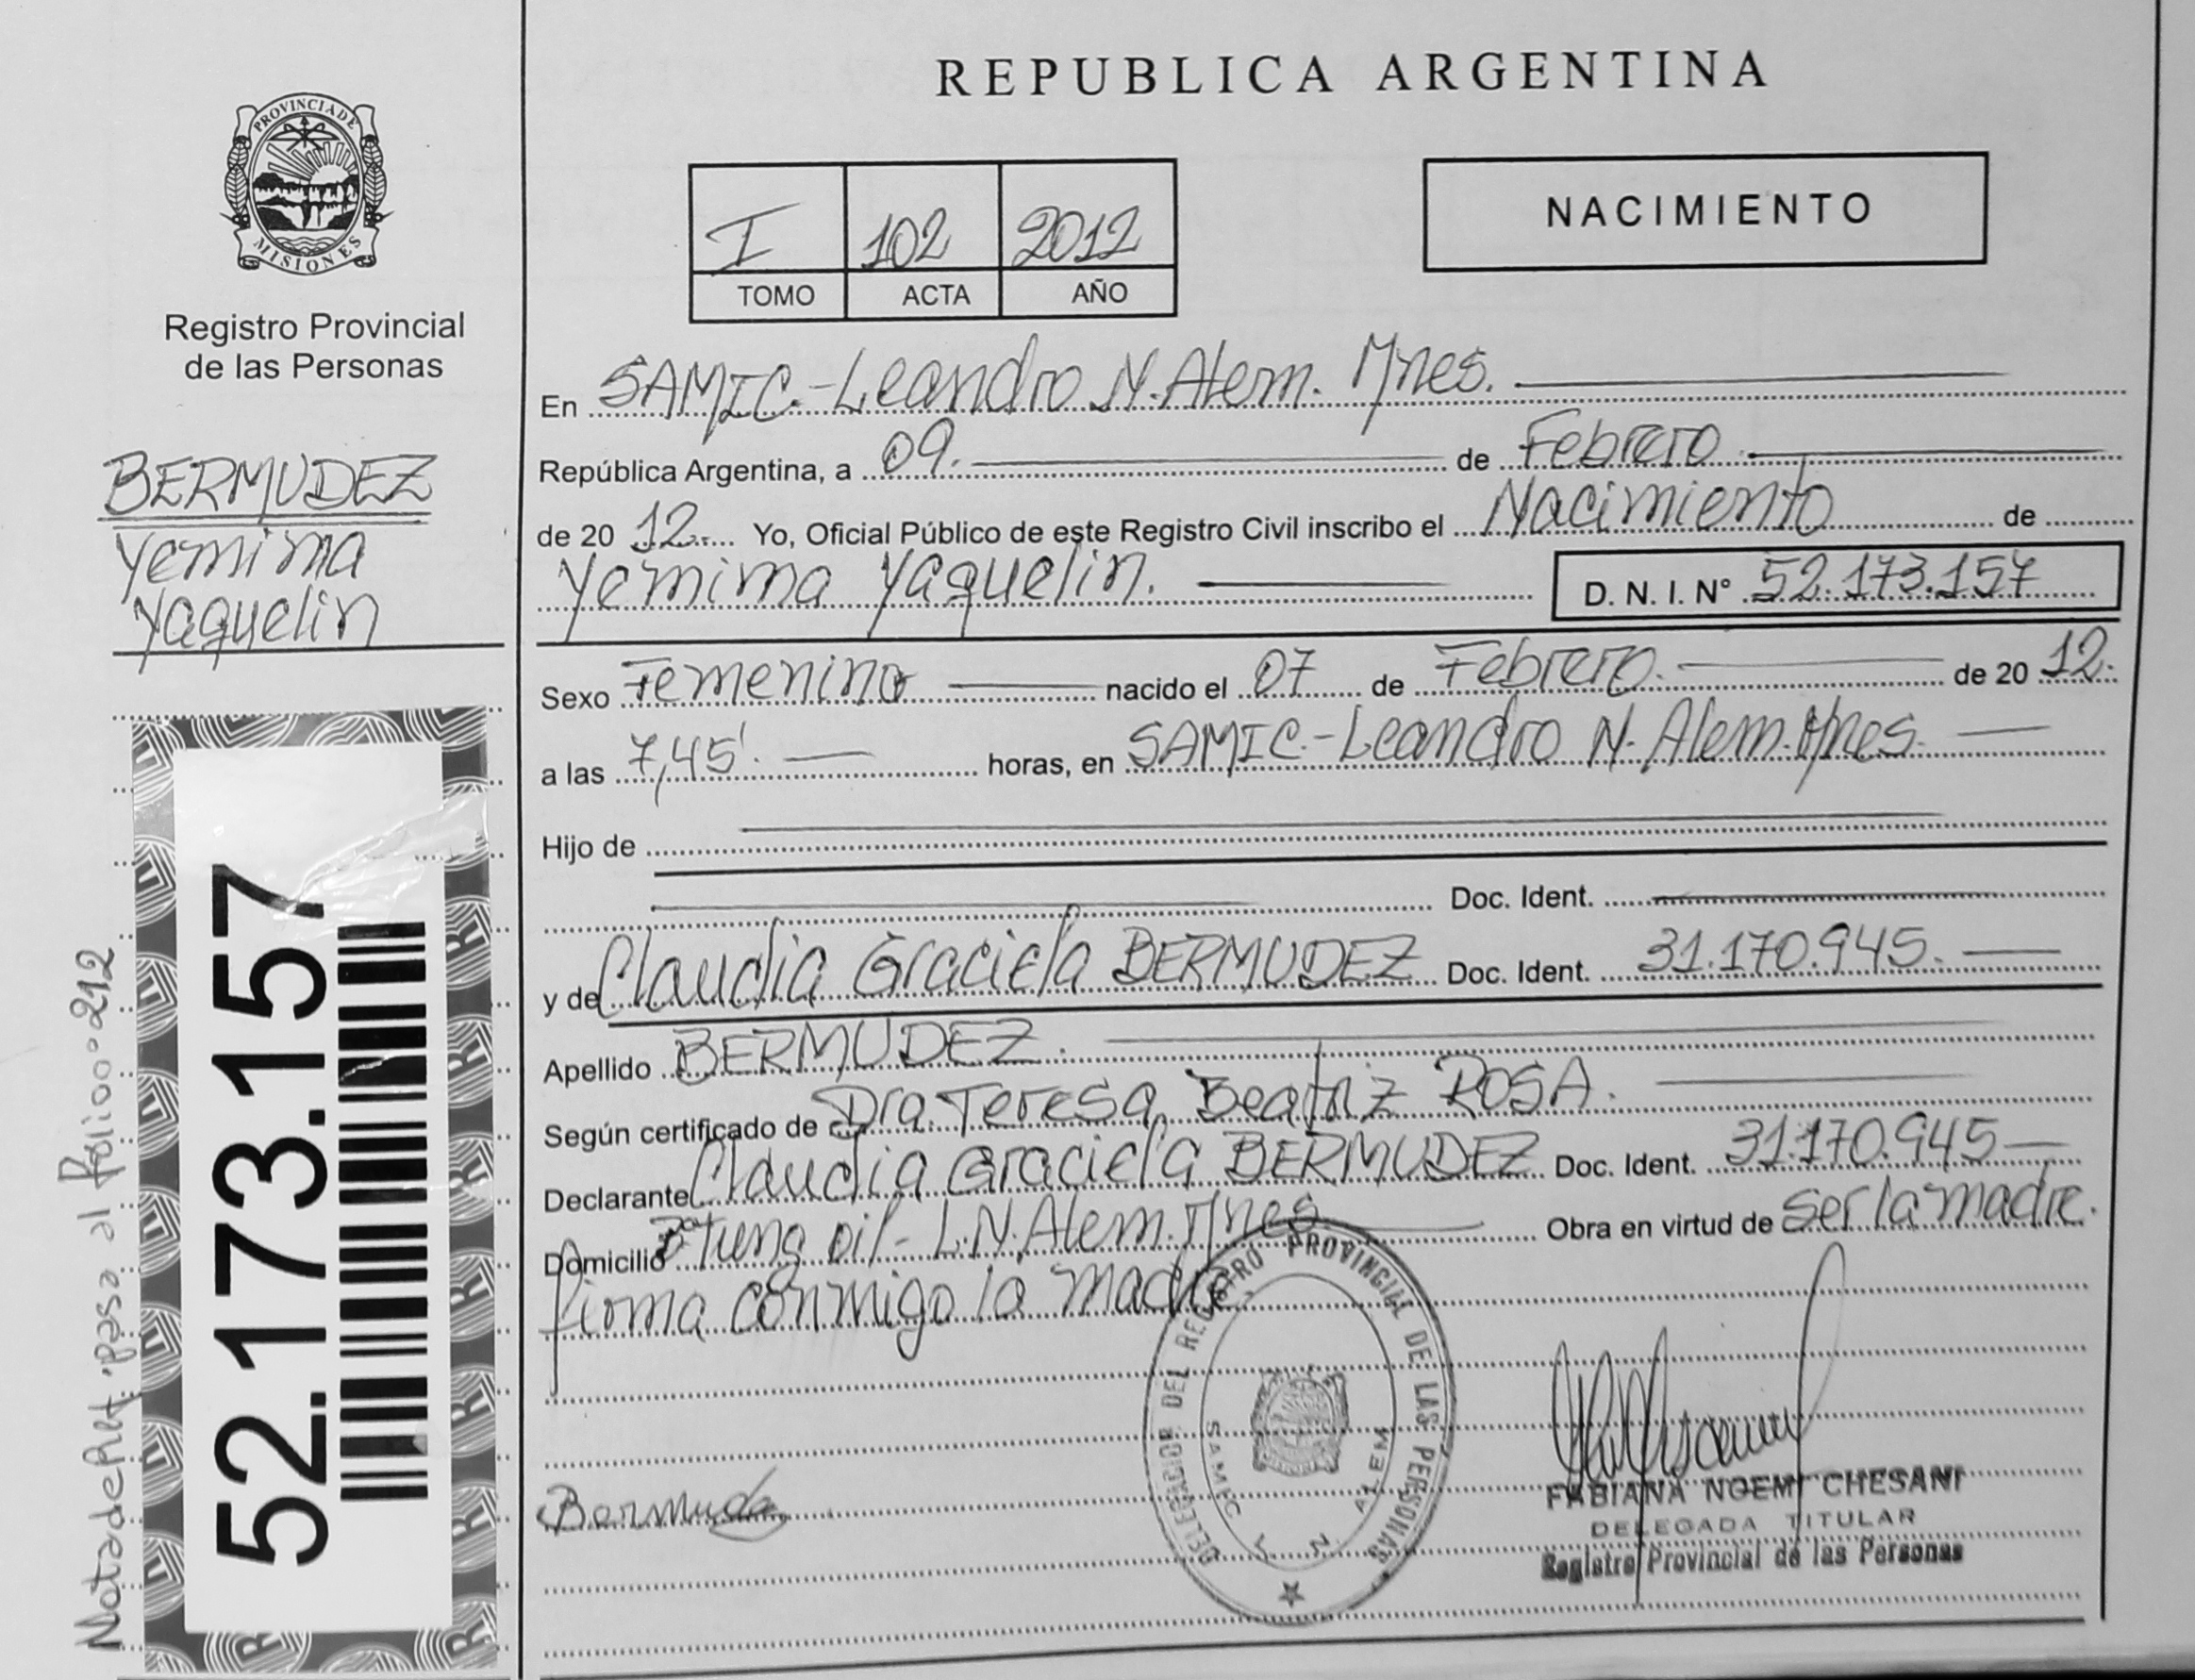 PROVINCIA DE
MISIONES
Registro Provincial
de las Personas
BERMUDEZ
Yemima
Yaquelin
52.173.157
Nota de Ref. pasa al folio 00212
REPUBLICA ARGENTINA
I 102 2012
TOMO ACTA AÑO
NACIMIENTO
En SAMIC.-Leandro N. Alem. Mnes.
República Argentina, a 09. de Febrero
de 20 12. Yo, Oficial Público de este Registro Civil inscribo el Nacimiento de
Yemima Yaquelin. D. N. I. N° 52.173.157
Sexo Femenino nacido el 07 de Febrero. de 20 12.
a las 7,45'. horas, en SAMIC.-Leandro N. Alem. Mnes.
Hijo de
Doc. Ident.
y de Claudia Graciela BERMUDEZ Doc. Ident. 31.170.945.
Apellido BERMUDEZ.
Según certificado de Dra. Teresa Beatriz ROSA.
Declarante Claudia Graciela BERMUDEZ Doc. Ident. 31.170.945
Domicilio Bº Tung oil - L.N. Alem. Mnes. Obra en virtud de ser la madre.
firma conmigo la madre.
DELEGACION DEL REGISTRO PROVINCIAL DE LAS PERSONAS
SAMIC L. N. ALEM
Bermudez
FABIANA NOEMI CHESANI
DELEGADA TITULAR
Registro Provincial de las Personas